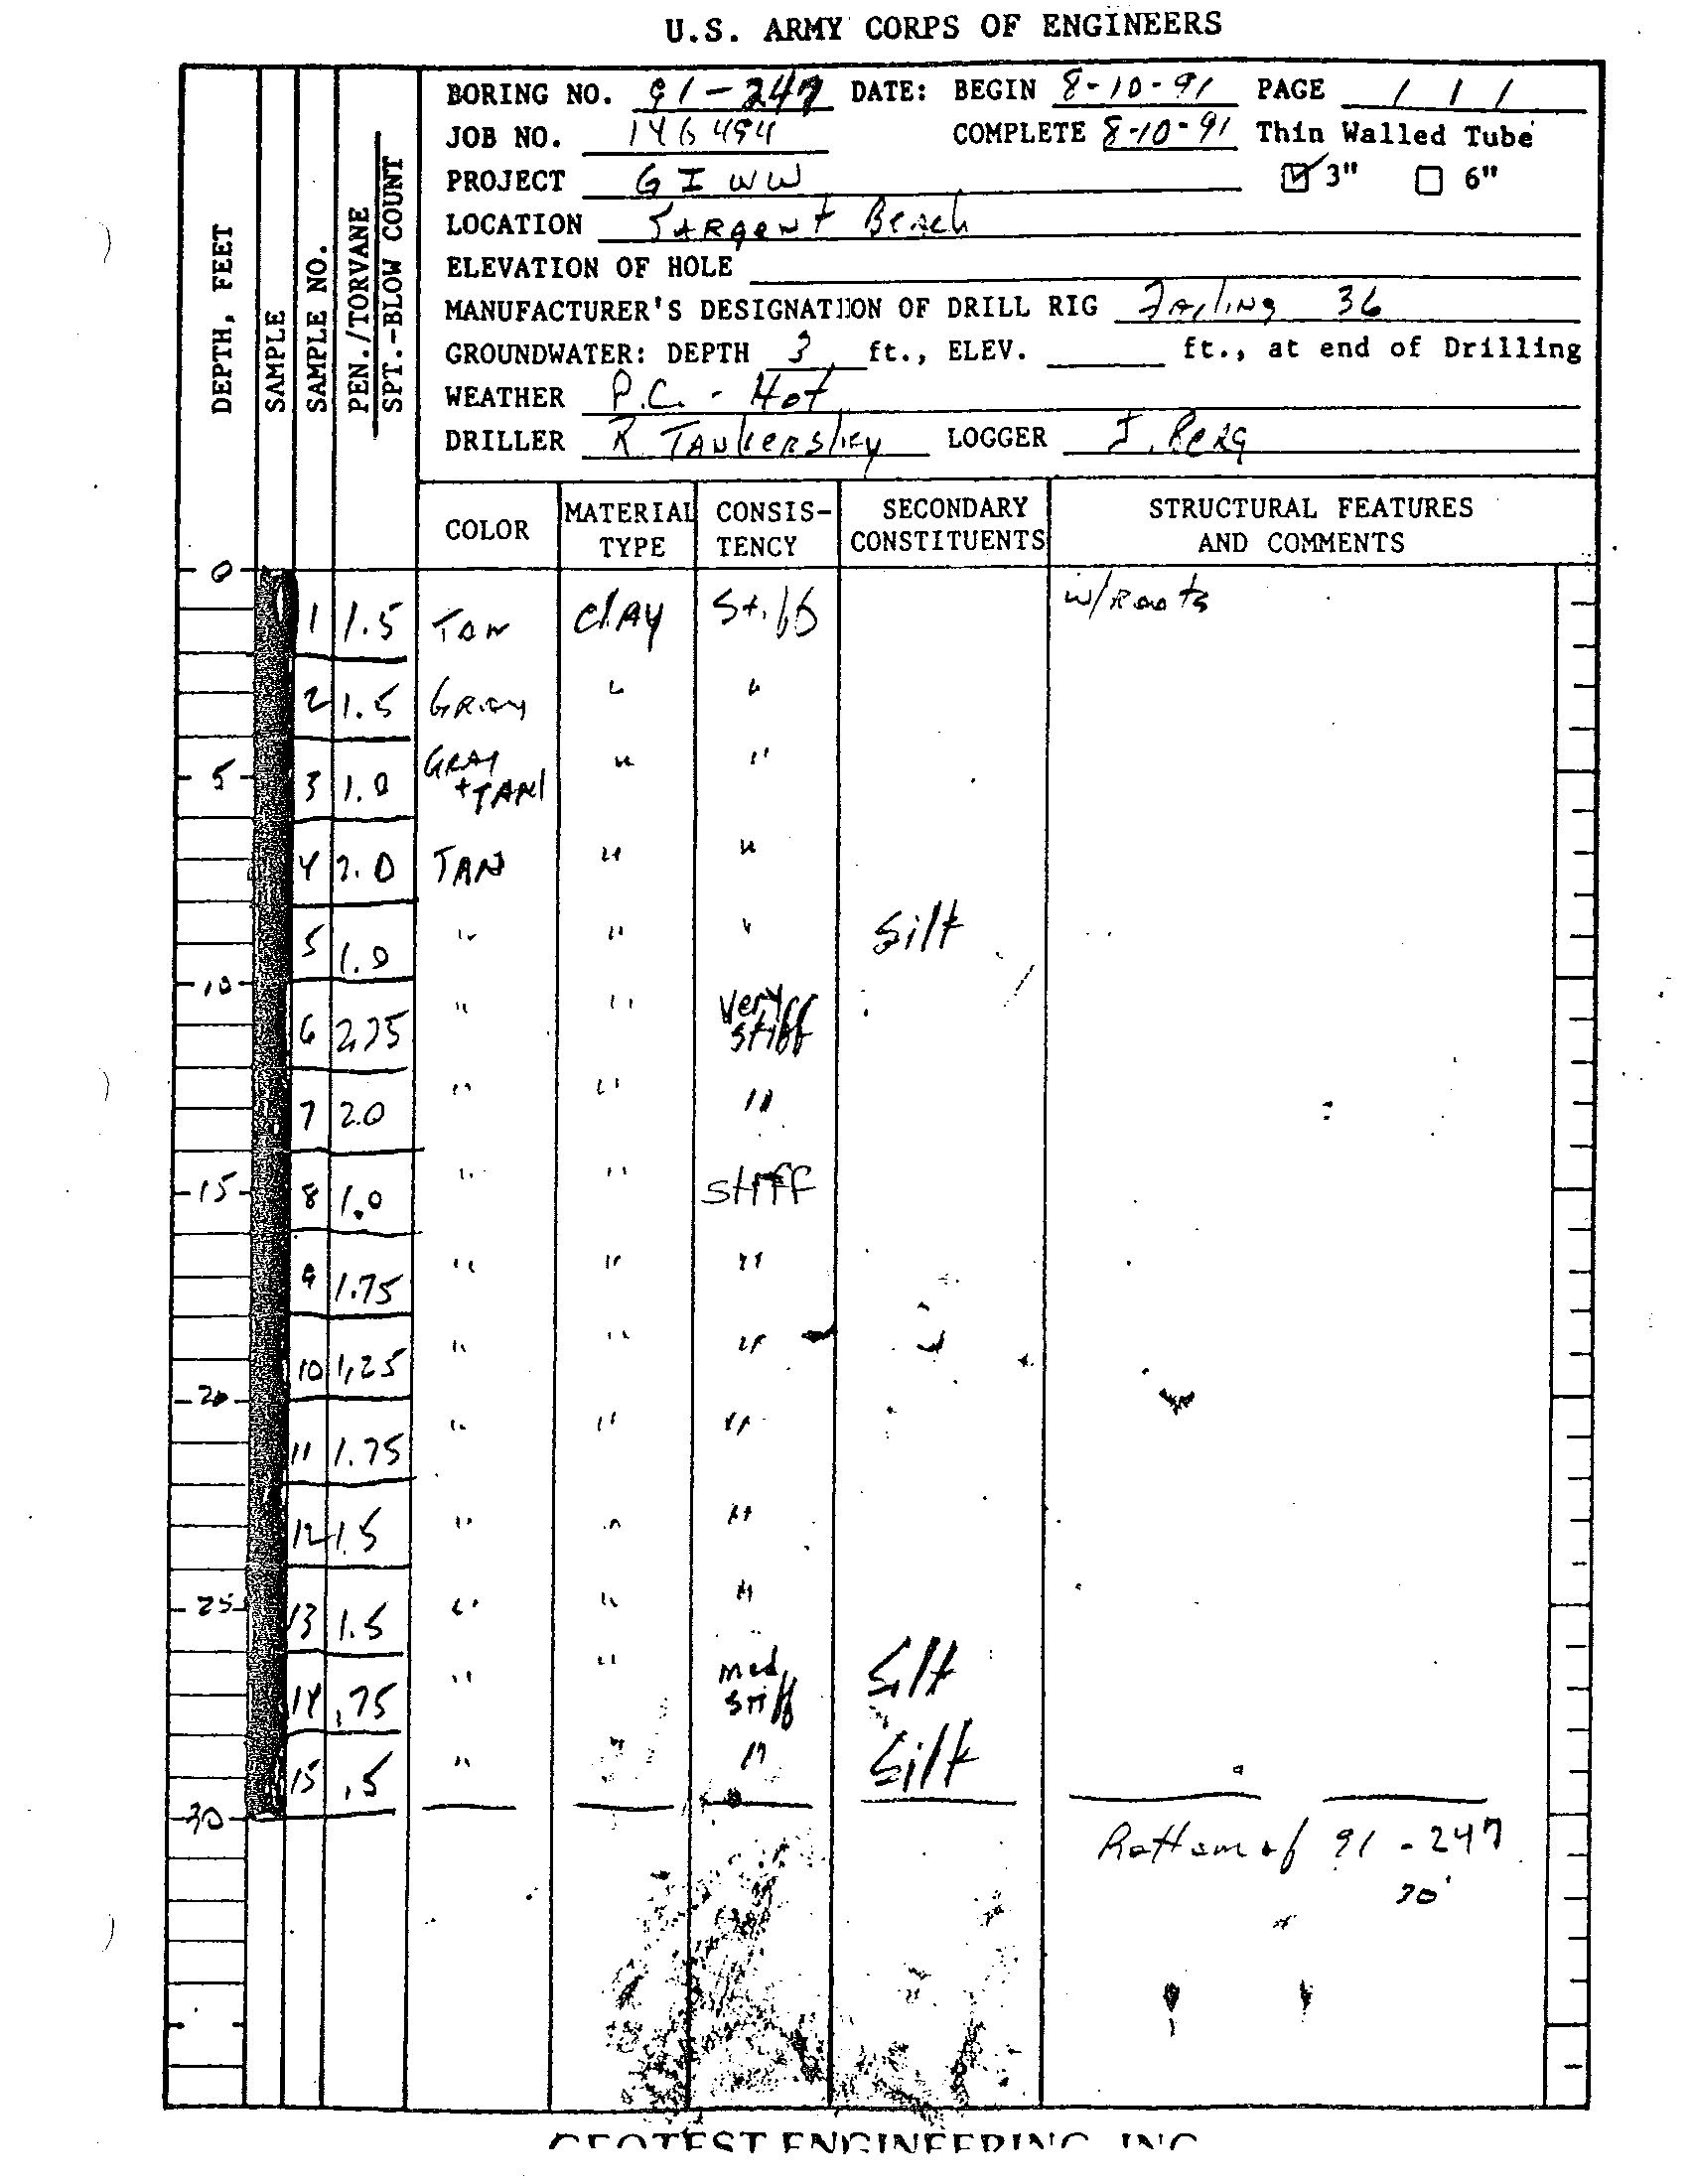 U.S. ARMY CORPS OF ENGINEERS
BORING NO. 91-247 DATE: BEGIN 8-10-91 PAGE 1 / 1
JOB NO. 146494 COMPLETE 8-10-91 Thin Walled Tube
PROJECT GIWW ☑ 3" ☐ 6"
LOCATION SARGENT Beach
ELEVATION OF HOLE
MANUFACTURER'S DESIGNATION OF DRILL RIG Failing 36
GROUNDWATER: DEPTH 3 ft., ELEV. ft., at end of Drilling
WEATHER P.C. - Hot
DRILLER R. TANKERSLEY LOGGER J. Berg
DEPTH, FEET
SAMPLE
SAMPLE NO.
PEN./TORVANE
SPT.-BLOW COUNT
COLOR MATERIAL TYPE CONSIS-TENCY SECONDARY CONSTITUENTS STRUCTURAL FEATURES AND COMMENTS
0
1 1.5 TAN CLAY Stiff w/Roots
2 1.5 GRAY " "
5 3 1.0 GRAY + TAN " "
4 2.0 TAN " "
5 1.0 " " " Silt
10
6 2.75 " " Very stiff
7 2.0 " " "
15 8 1.0 " " stiff
9 1.75 " " "
10 1.25 " " "
20
11 1.75 " " "
12 1.5 " " "
25 13 1.5 " " "
14 .75 " " med stiff Silt
15 .5 " " " Silt
30
Bottom of 91-247
30'
GEOTEST ENGINEERING, INC